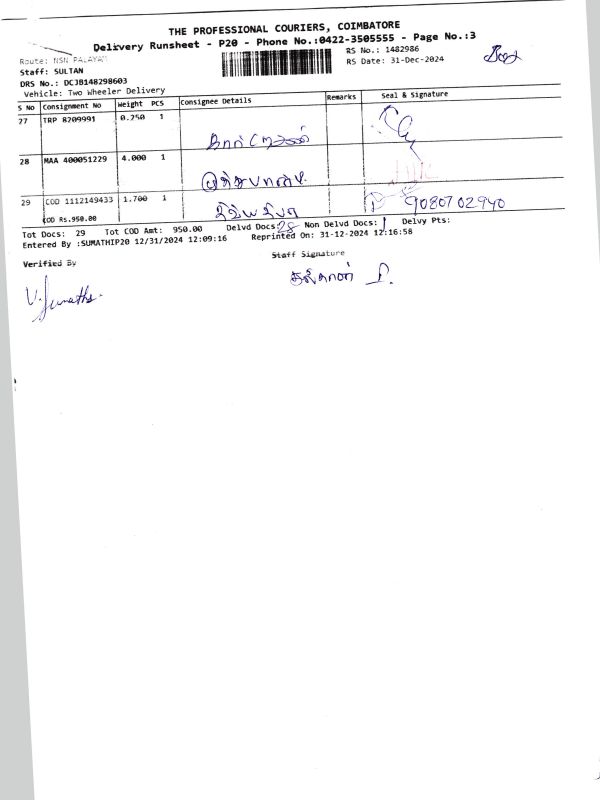 THE PROFESSIONAL COURIERS, COIMBATORE
Delivery Runsheet - P20 - Phone No.:0422-3505555 - Page No.:3
Route: NSN PALAYAM
RS No.: 1482986
Staff: SULTAN
RS Date: 31-Dec-2024
DRS No.: DCJB148298603
Vehicle: Two Wheeler Delivery
S No Consignment No Weight PCS Consignee Details Remarks Seal & Signature
27 TRP 8209991 0.250 1
28 MAA 400051229 4.000 1
29 COD 1112149433 1.700 1 9080702940
COD Rs.950.00
Tot Docs: 29 Tot COD Amt: 950.00 Delvd Docs: 28 Non Delvd Docs: 1 Delvy Pts:
Entered By :SUMATHIP20 12/31/2024 12:09:16 Reprinted On: 31-12-2024 12:16:58
Verified By Staff Signature
V. Sumathi.